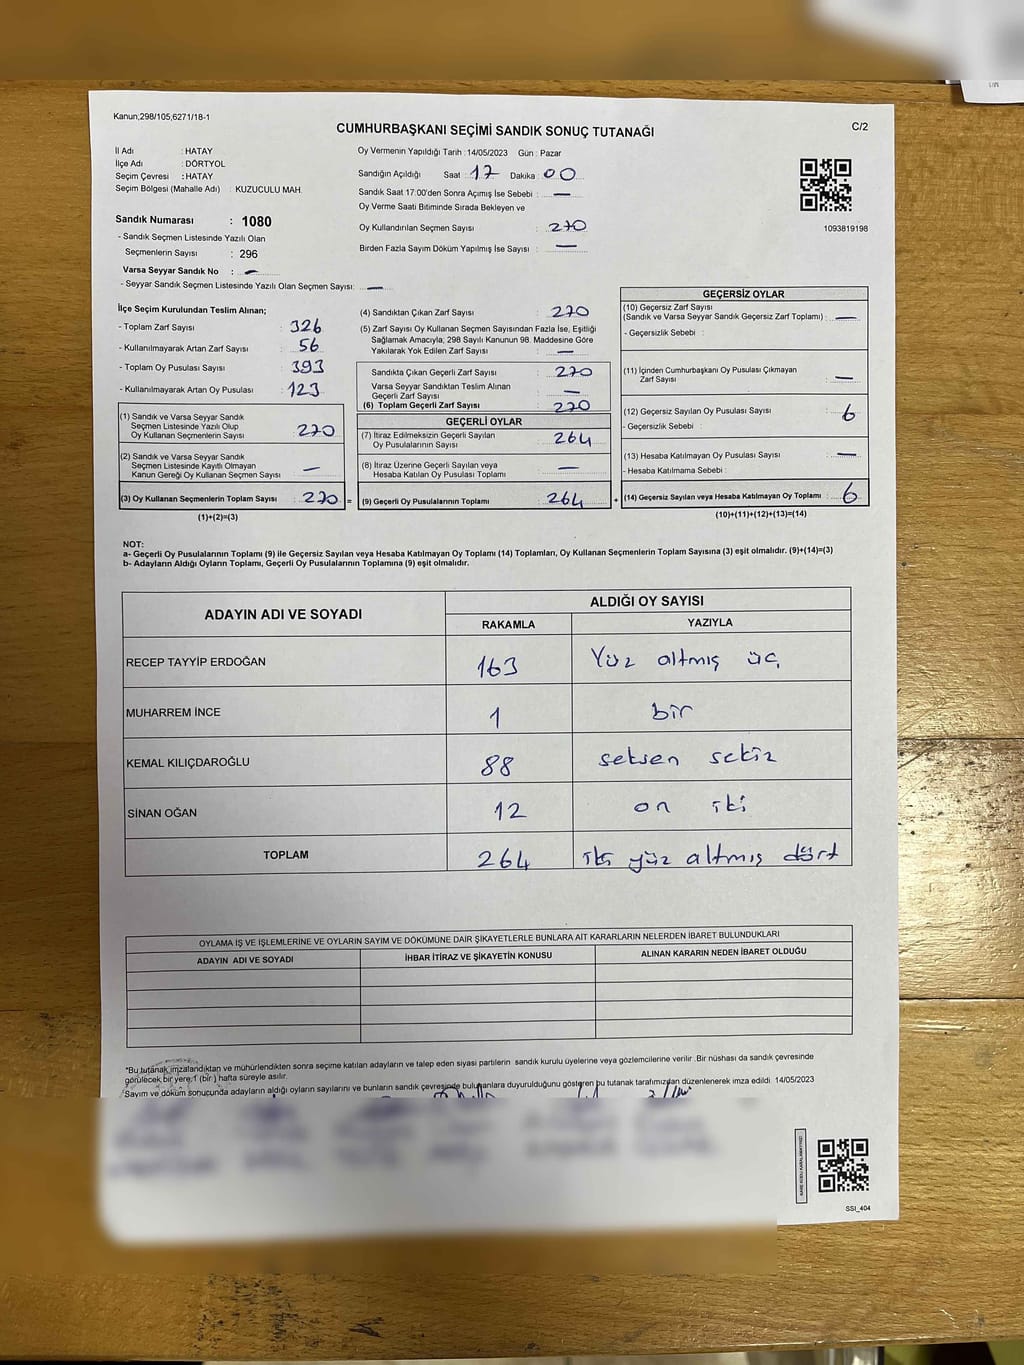 Kanun;298/105,6271/18-1
CUMHURBAŞKANI SEÇİMİ SANDIK SONUÇ TUTANAĞI
C/2
İl Adı : HATAY
İlçe Adı : DÖRTYOL
Seçim Çevresi : HATAY
Seçim Bölgesi (Mahalle Adı) : KUZUCULU MAH.
Sandık Numarası : 1080
- Sandık Seçmen Listesinde Yazılı Olan
Seçmenlerin Sayısı : 296
Varsa Seyyar Sandık No : —
- Seyyar Sandık Seçmen Listesinde Yazılı Olan Seçmen Sayısı: —
Oy Vermenin Yapıldığı Tarih : 14/05/2023 Gün : Pazar
Sandığın Açıldığı Saat : 17 Dakika : 00
Sandık Saat 17:00'den Sonra Açımış İse Sebebi : —
Oy Verme Saati Bitiminde Sırada Bekleyen ve
Oy Kullandırılan Seçmen Sayısı : 270
Birden Fazla Sayım Döküm Yapılmış İse Sayısı : —
1093819198
İlçe Seçim Kurulundan Teslim Alınan;
- Toplam Zarf Sayısı : 326
- Kullanılmayarak Artan Zarf Sayısı : 56
- Toplam Oy Pusulası Sayısı : 393
- Kullanılmayarak Artan Oy Pusulası : 123
(1) Sandık ve Varsa Seyyar Sandık
Seçmen Listesinde Yazılı Olup
Oy Kullanan Seçmenlerin Sayısı : 270
(2) Sandık ve Varsa Seyyar Sandık
Seçmen Listesinde Kayıtlı Olmayan
Kanun Gereği Oy Kullanan Seçmen Sayısı : —
(3) Oy Kullanan Seçmenlerin Toplam Sayısı : 270 =
(1)+(2)=(3)
(4) Sandıktan Çıkan Zarf Sayısı : 270
(5) Zarf Sayısı Oy Kullanan Seçmen Sayısından Fazla İse, Eşitliği
Sağlamak Amacıyla; 298 Sayılı Kanunun 98. Maddesine Göre
Yakılarak Yok Edilen Zarf Sayısı : —
Sandıkta Çıkan Geçerli Zarf Sayısı : 270
Varsa Seyyar Sandıktan Teslim Alınan
Geçerli Zarf Sayısı : —
(6) Toplam Geçerli Zarf Sayısı : 270
GEÇERLİ OYLAR
(7) İtiraz Edilmeksizin Geçerli Sayılan
Oy Pusulalarının Sayısı : 264
(8) İtiraz Üzerine Geçerli Sayılan veya
Hesaba Katılan Oy Pusulası Toplamı : —
(9) Geçerli Oy Pusulalarının Toplamı : 264 +
GEÇERSİZ OYLAR
(10) Geçersiz Zarf Sayısı
(Sandık ve Varsa Seyyar Sandık Geçersiz Zarf Toplamı) : —
- Geçersizlik Sebebi :
(11) İçinden Cumhurbaşkanı Oy Pusulası Çıkmayan
Zarf Sayısı : —
(12) Geçersiz Sayılan Oy Pusulası Sayısı : 6
- Geçersizlik Sebebi :
(13) Hesaba Katılmayan Oy Pusulası Sayısı : —
- Hesaba Katılmama Sebebi :
(14) Geçersiz Sayılan veya Hesaba Katılmayan Oy Toplamı : 6
(10)+(11)+(12)+(13)=(14)
NOT:
a- Geçerli Oy Pusulalarının Toplamı (9) ile Geçersiz Sayılan veya Hesaba Katılmayan Oy Toplamı (14) Toplamları, Oy Kullanan Seçmenlerin Toplam Sayısına (3) eşit olmalıdır. (9)+(14)=(3)
b- Adayların Aldığı Oyların Toplamı, Geçerli Oy Pusulalarının Toplamına (9) eşit olmalıdır.
ADAYIN ADI VE SOYADI
ALDIĞI OY SAYISI
RAKAMLA YAZIYLA
RECEP TAYYİP ERDOĞAN 163 Yüz altmış üç
MUHARREM İNCE 1 bir
KEMAL KILIÇDAROĞLU 88 seksen sekiz
SİNAN OĞAN 12 on iki
TOPLAM 264 iki yüz altmış dört
OYLAMA İŞ VE İŞLEMLERİNE VE OYLARIN SAYIM VE DÖKÜMÜNE DAİR ŞİKAYETLERLE BUNLARA AİT KARARLARIN NELERDEN İBARET BULUNDUKLARI
ADAYIN ADI VE SOYADI İHBAR İTİRAZ VE ŞİKAYETİN KONUSU ALINAN KARARIN NEDEN İBARET OLDUĞU
*Bu tutanak imzalandıktan ve mühürlendikten sonra seçime katılan adayların ve talep eden siyasi partilerin sandık kurulu üyelerine veya gözlemcilerine verilir .Bir nüshası da sandık çevresinde
görülecek bir yere 1 (bir ) hafta süreyle asılır.
Sayım ve döküm sonucunda adayların aldığı oyların sayılarını ve bunların sandık çevresinde bulunanlara duyurulduğunu gösteren bu tutanak tarafımızdan düzenlenerek imza edildi 14/05/2023
SSI_404